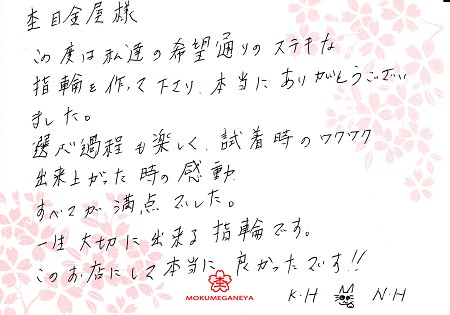 杢目金屋様
この度は私達の希望通りのステキな
指輪を作って下さり、本当にありがとうござい
ました。
選ぶ過程も楽しく、試着時のワクワク
出来上がった時の感動
すべてが満点でした。
一生大切に出来る指輪です。
このお店にして本当に良かったです!!
MOKUMEGANEYA
K.H N.H